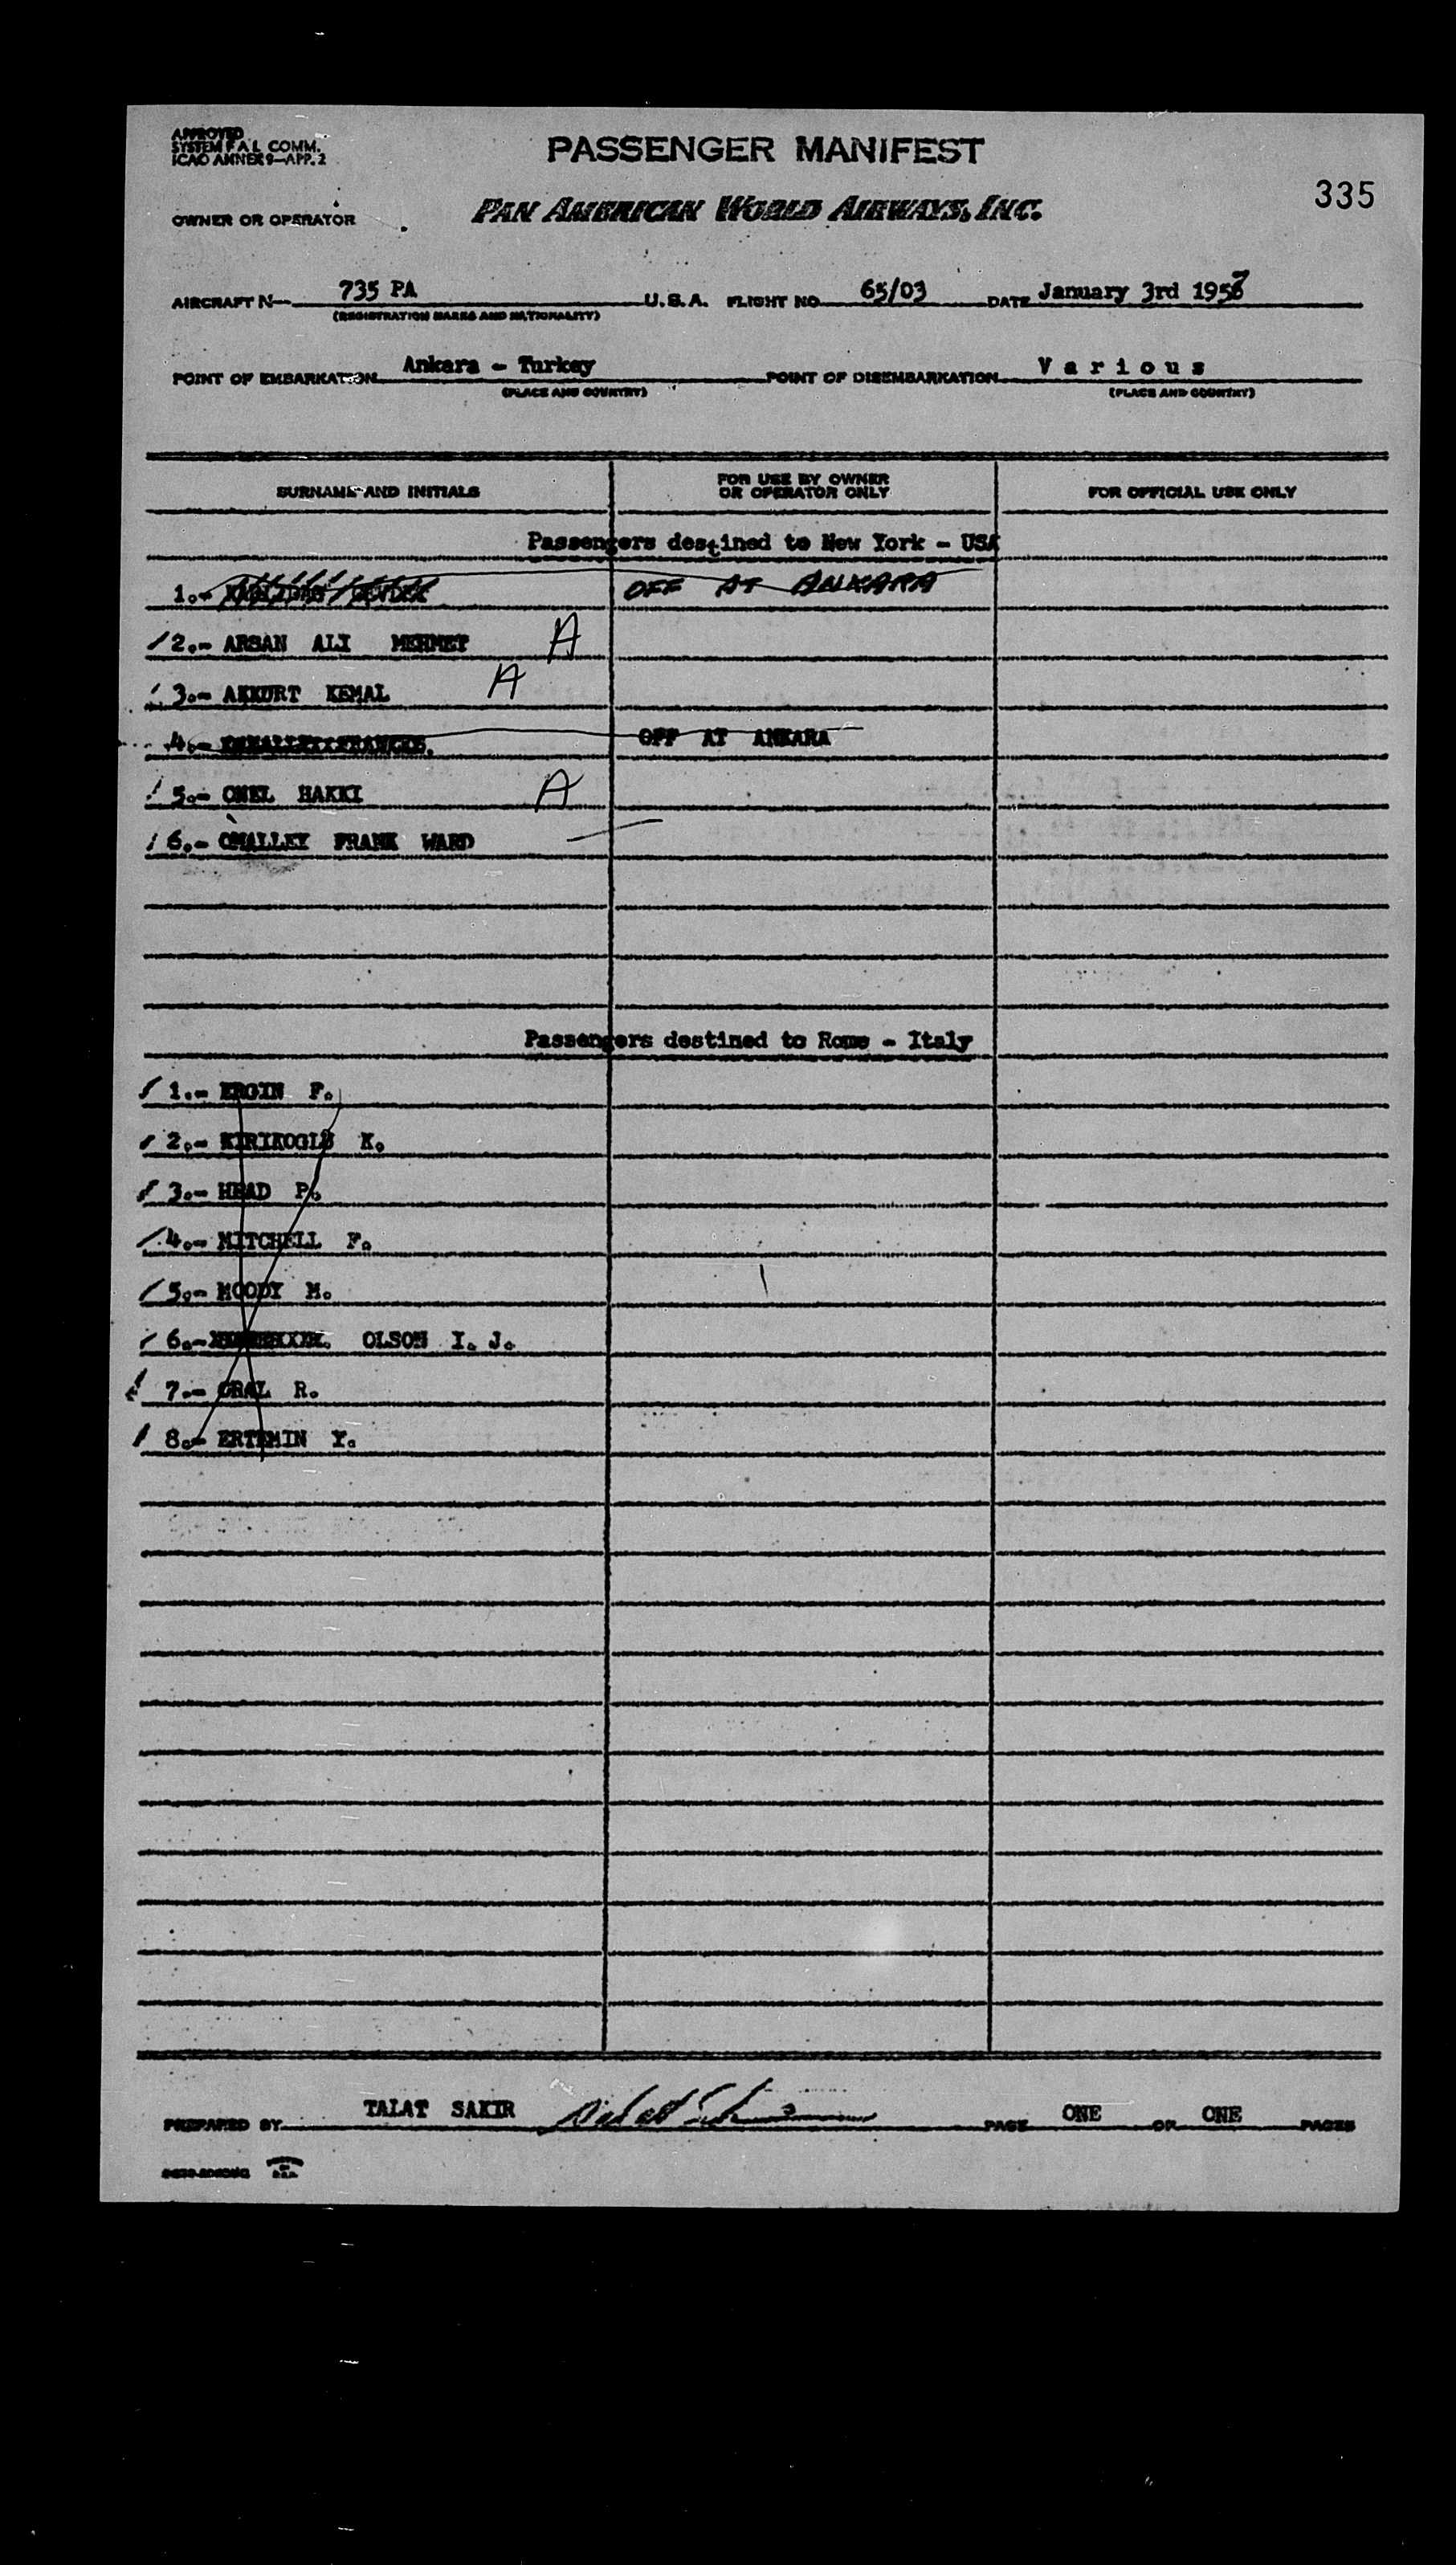 APPROVED
SYSTEM F.A.L. COMM.
ICAO ANNEX 9—APP. 2
PASSENGER MANIFEST
335
OWNER OR OPERATOR
PAN AMERICAN WORLD AIRWAYS, INC.
AIRCRAFT N— 735 PA U.S.A. FLIGHT NO. 65/03 DATE January 3rd 1957
(REGISTRATION MARKS AND NATIONALITY)
POINT OF EMBARKATION Ankara - Turkey POINT OF DISEMBARKATION Various
(PLACE AND COUNTRY) (PLACE AND COUNTRY)
SURNAME AND INITIALS FOR USE BY OWNER OR OPERATOR ONLY FOR OFFICIAL USE ONLY
Passengers destined to New York - USA
1.- OFF AT ANKARA
2.- ARSAN ALI MEHMET A
3.- AKKURT KEMAL A
4.- OFF AT ANKARA
5.- ONEL HAKKI A
6.- OMALLEY FRANK WARD
Passengers destined to Rome - Italy
1.- ERGIN F.
2.- KIRIKOGLU K.
3.- HEAD P.
4.- MITCHELL F.
5.- MOODY M.
6.- OLSON I. J.
7.- ORAL R.
8.- ERTEMIN Y.
PREPARED BY TALAT SAKIR PAGE ONE OF ONE PAGES